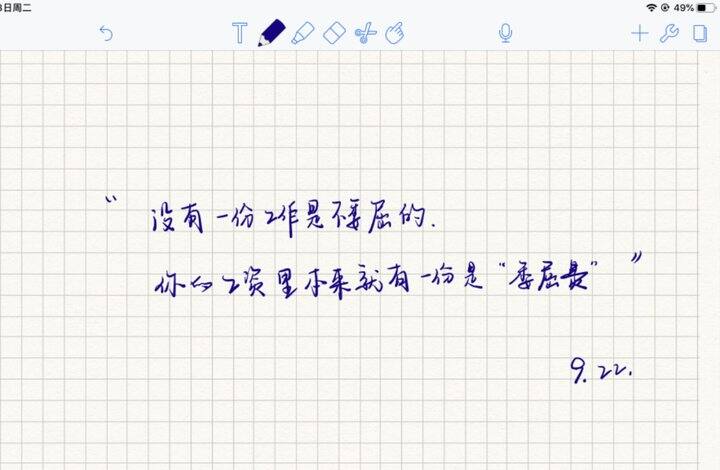 日周二
49%
T
“没有一份工作是不委屈的.
你的工资里本来就有一份是“委屈费””
9.22.